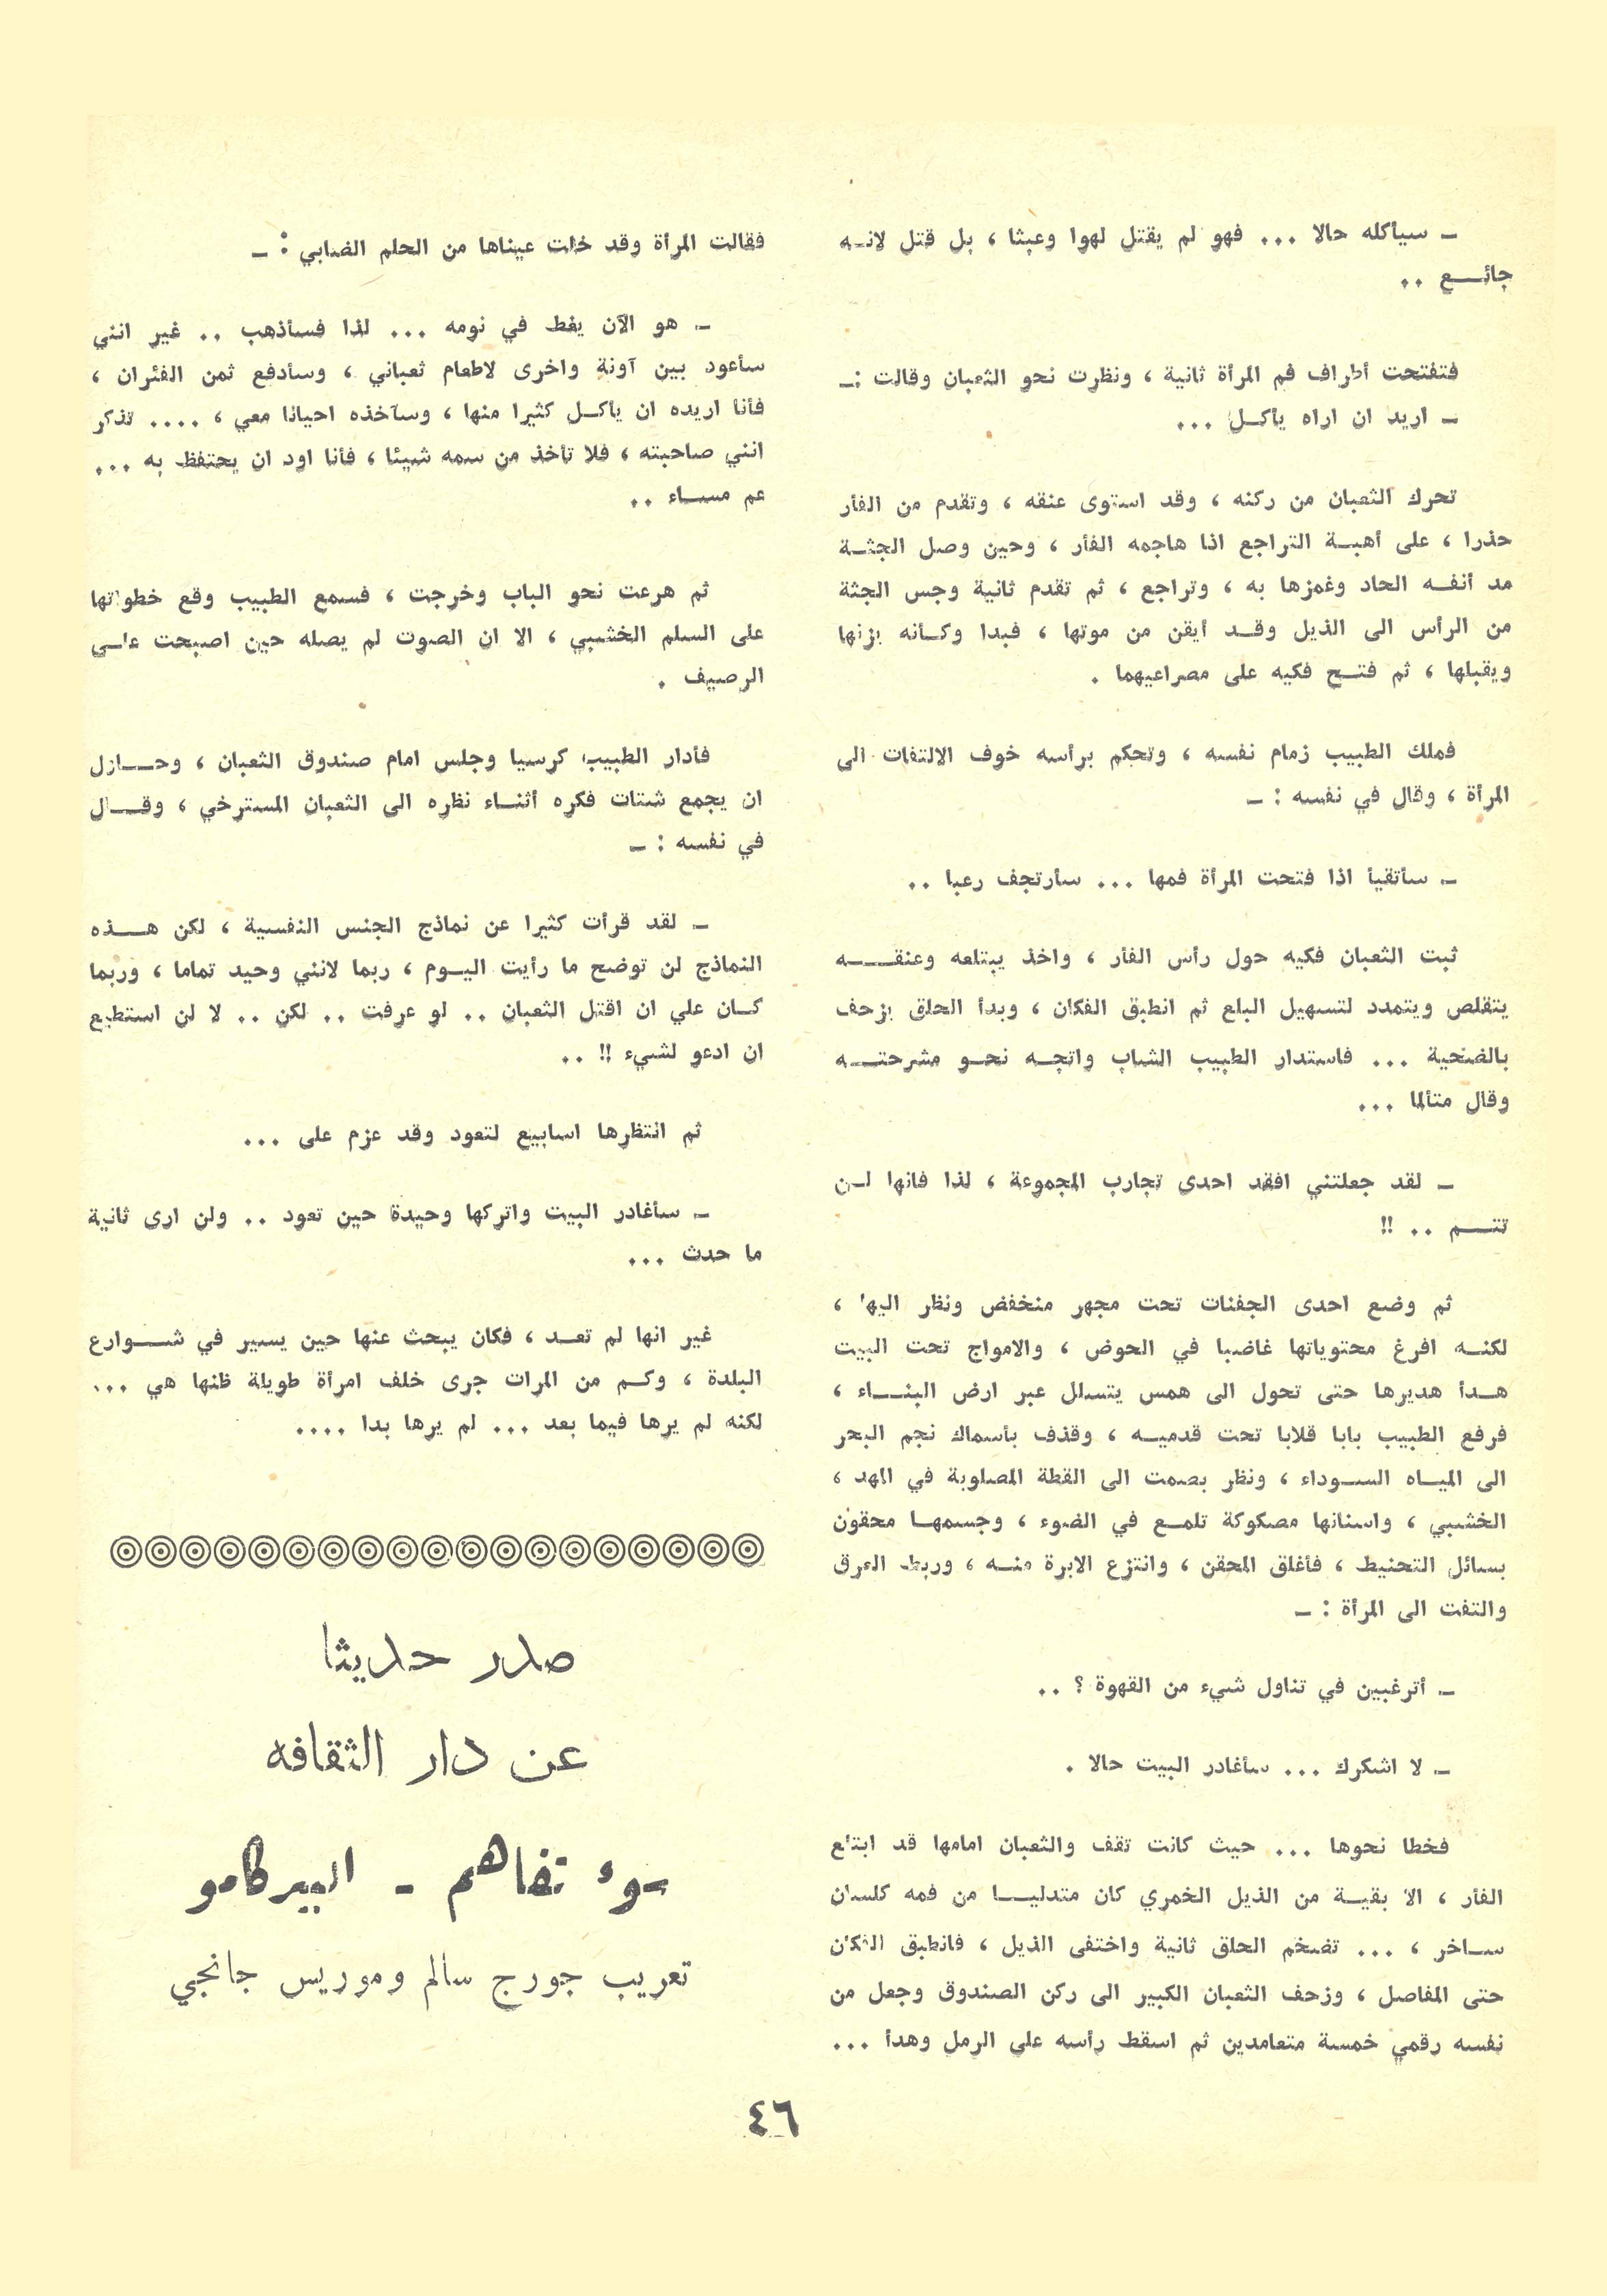 ــ سيأكله حالا ... فهو لم يقتل لهوا وعبثا ، بل قتل لانـه
جائـــع ..
فتفتحت أطراف فم المرأة ثانية ، ونظرت نحو الثعبان وقالت :ــ
ــ اريد ان اراه يأكـل ...
تحرك الثعبان من ركنه ، وقد استوى عنقه ، وتقدم من الفأر
حذرا ، على أهبـة التراجع اذا هاجمه الفأر ، وحين وصل الجثـة
مد أنفـه الحاد وغمزها به ، وتراجع ، ثم تقدم ثانية وجس الجثة
من الرأس الى الذيل وقـد أيقن من موتها ، فبدا وكـأنه يزنها
ويقبلها ، ثم فتـح فكيه على مصراعيهما .
فملك الطبيب زمام نفسه ، وتحكم برأسه خوف الالتفات الى
المرأة ، وقال في نفسه : ــ
ــ سأتقيأ اذا فتحت المرأة فمها ... سأرتجف رعبا ..
ثبت الثعبان فكيه حول رأس الفأر ، واخذ يبتلعه وعنقـــه
يتقلص ويتمدد لتسهيل البلع ثم انطبق الفكان ، وبدأ الحلق يزحف
بالضحية ... فاستدار الطبيب الشاب واتجـه نحـو مشرحتـــه
وقال متألما ...
ــ لقد جعلتني افقد احدى تجارب المجموعة ، لذا فانها لـن
تتـــم .. !!
ثم وضع احدى الجفنات تحت مجهر منخفض ونظر اليها ،
لكنـه افرغ محتوياتها غاضبا في الحوض ، والامواج تحت البيت
هـدأ هديرها حتى تحول الى همس يتسلل عبر ارض البنـــاء ،
فرفع الطبيب بابا قلابا تحت قدميـه ، وقذف بأسماك نجم البحر
الى الميـاه السـوداء ، ونظر بصمت الى القطة المصلوبة في المهد ،
الخشبي ، واسنانها مصكوكة تلمـع في الضوء ، وجسمهـا محقون
بسائل التحنيط ، فأغلق المحقن ، وانتزع الابرة منـه ، وربط العرق
والتفت الى المرأة : ــ
ــ أترغبين في تناول شيء من القهوة ؟ ..
ــ لا اشكرك ... سأغادر البيت حالا .
فخطا نحوها ... حيث كانت تقف والثعبان امامها قد ابتلع
الفأر ، الا بقيـة من الذيل الخمري كان متدليـــا من فمه كلسان
سـاخر ، ... تضخم الحلق ثانية واختفى الذيل ، فانطبق الفكان
حتى المفاصل ، وزحف الثعبان الكبير الى ركن الصندوق وجعل من
نفسه رقمي خمسة متعامدين ثم اسقط رأسه على الرمل وهدأ ...
فقالت المرأة وقد خلت عيناها من الحلم الضبابي : ــ
ــ هو الآن يغط في نومه ... لذا فسأذهب .. غير انني
سأعود بين آونة واخرى لاطعام ثعباني ، وسأدفع ثمن الفئران ،
فأنا اريده ان يأكـل كثيرا منها ، وسآخذه احيانا معي ، .... تذكر
انني صاحبته ، فلا تأخذ من سمه شيئا ، فأنا اود ان يحتفظ به ...
عم مسـاء ..
ثم هرعت نحو الباب وخرجت ، فسمع الطبيب وقع خطواتها
على السلم الخشبي ، الا ان الصوت لم يصله حين اصبحت علـى
الرصيف .
فأدار الطبيب كرسيا وجلس امام صندوق الثعبان ، وحـــاول
ان يجمع شتات فكره أثنـاء نظره الى الثعبان المسترخي ، وقـــال
في نفسه : ــ
ــ لقد قرأت كثيرا عن نماذج الجنس النفسية ، لكن هـــذه
النماذج لن توضح ما رأيت اليـوم ، ربما لانني وحيد تماما ، وربما
كـان علي ان اقتل الثعبان .. لو عرفت .. لكن .. لا لن استطيع
ان ادعو لشيء !! ..
ثم انتظرها اسابيع لتعود وقد عزم على ...
ــ سأغادر البيت واتركها وحيدة حين تعود .. ولن ارى ثانية
ما حدث ...
غير انها لم تعـد ، فكان يبحث عنها حين يسير في شـــوارع
البلدة ، وكـم من المرات جرى خلف امرأة طويلة ظنها هي ...
لكنه لم يرها فيما بعد ... لم يرها بدا ....
صدر حديثا
عن دار الثقافه
سوء تفاهم - البير كامو
تعريب جورج سالم وموريس جانجي
٤٦